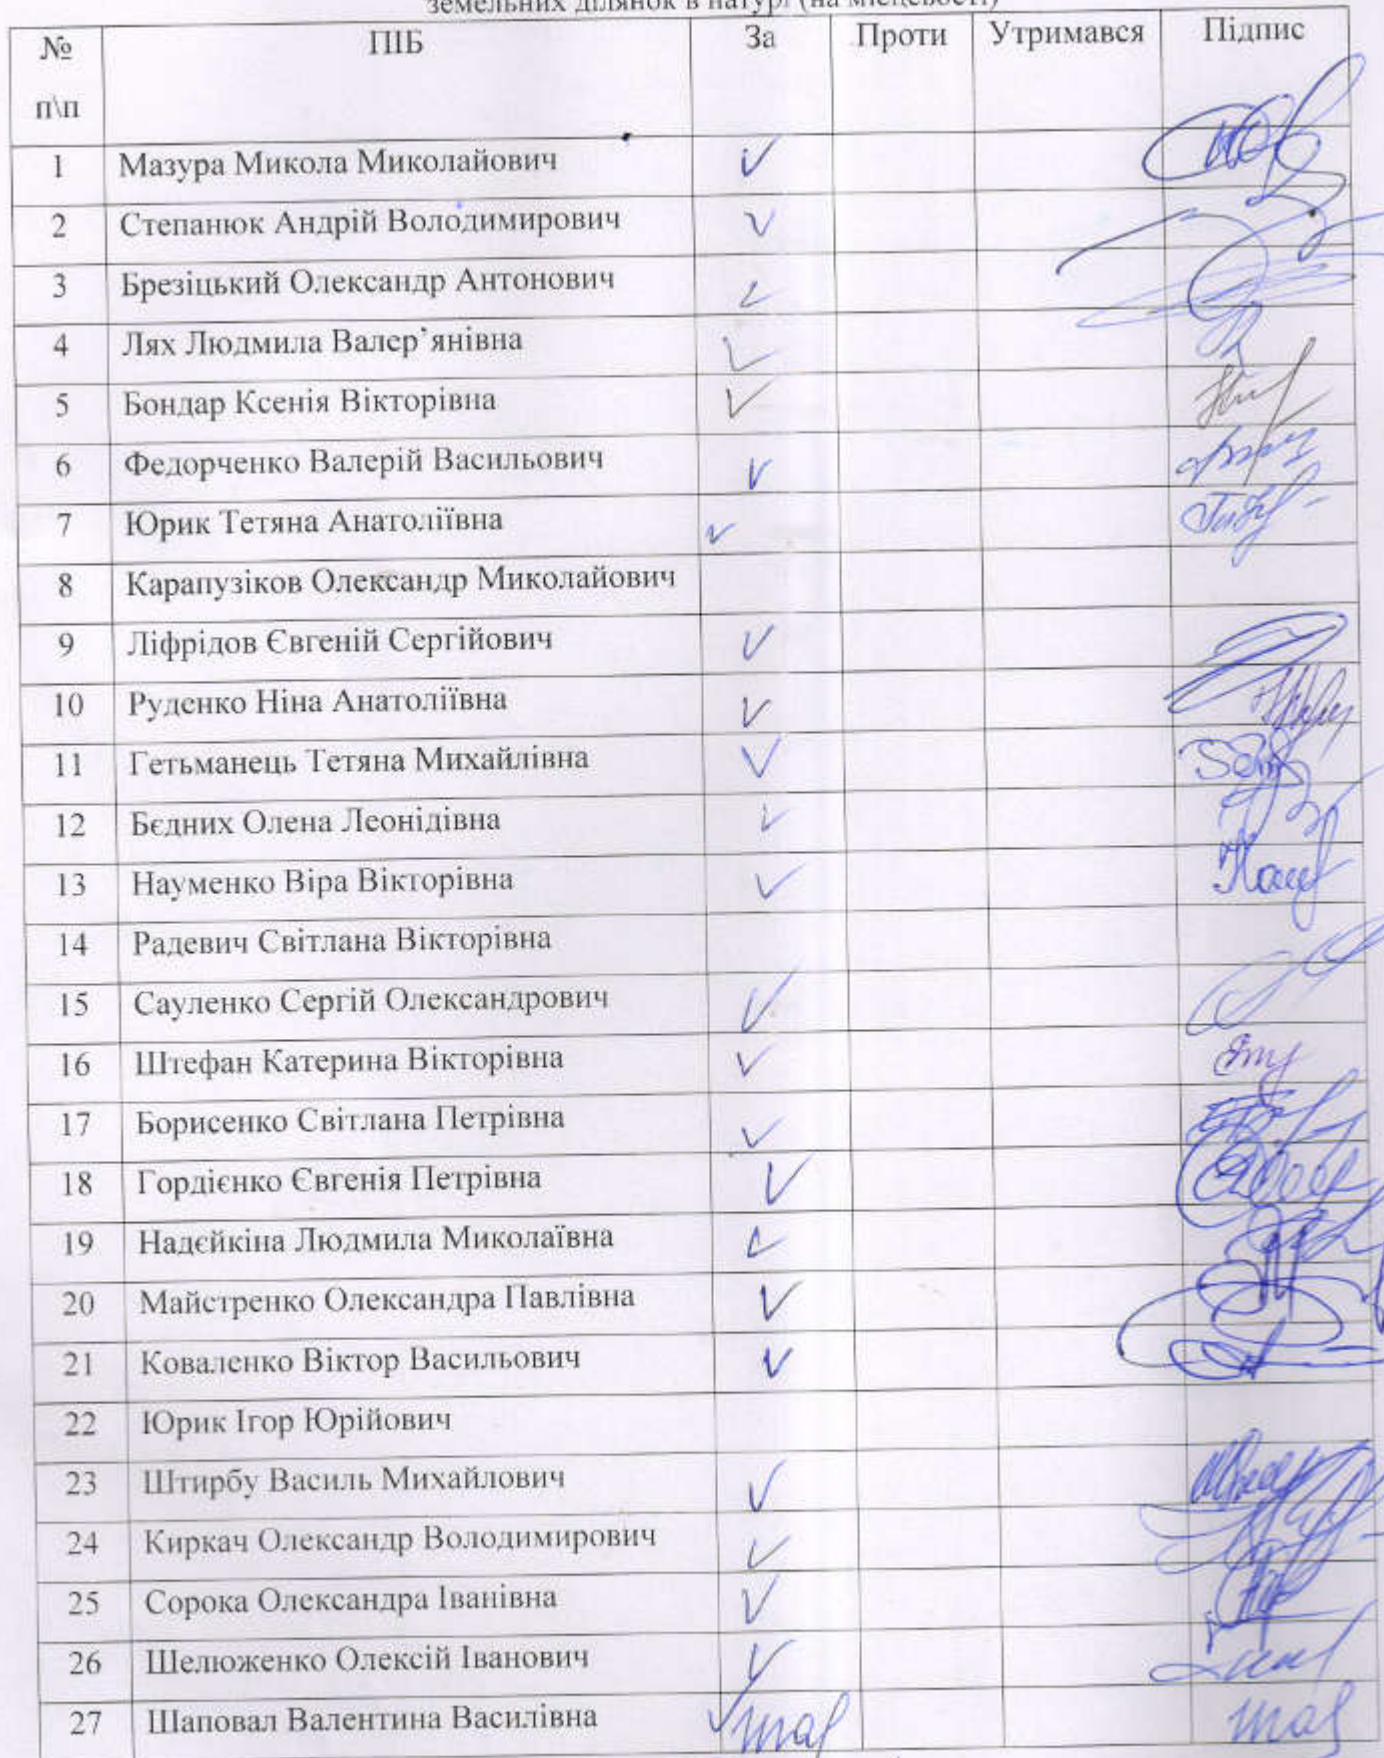 земельних ділянок в натурі (на місцевості)
№ п\п ПІБ За Проти Утримався Підпис
1 Мазура Микола Миколайович
2 Степанюк Андрій Володимирович
3 Брезіцький Олександр Антонович
4 Лях Людмила Валер’янівна
5 Бондар Ксенія Вікторівна
6 Федорченко Валерій Васильович
7 Юрик Тетяна Анатоліївна
8 Карапузіков Олександр Миколайович
9 Ліфрідов Євгеній Сергійович
10 Руденко Ніна Анатоліївна
11 Гетьманець Тетяна Михайлівна
12 Бєдних Олена Леонідівна
13 Науменко Віра Вікторівна
14 Радевич Світлана Вікторівна
15 Сауленко Сергій Олександрович
16 Штефан Катерина Вікторівна
17 Борисенко Світлана Петрівна
18 Гордієнко Євгенія Петрівна
19 Надєйкіна Людмила Миколаївна
20 Майстренко Олександра Павлівна
21 Коваленко Віктор Васильович
22 Юрик Ігор Юрійович
23 Штирбу Василь Михайлович
24 Киркач Олександр Володимирович
25 Сорока Олександра Іванівна
26 Шелюженко Олексій Іванович
27 Шаповал Валентина Василівна